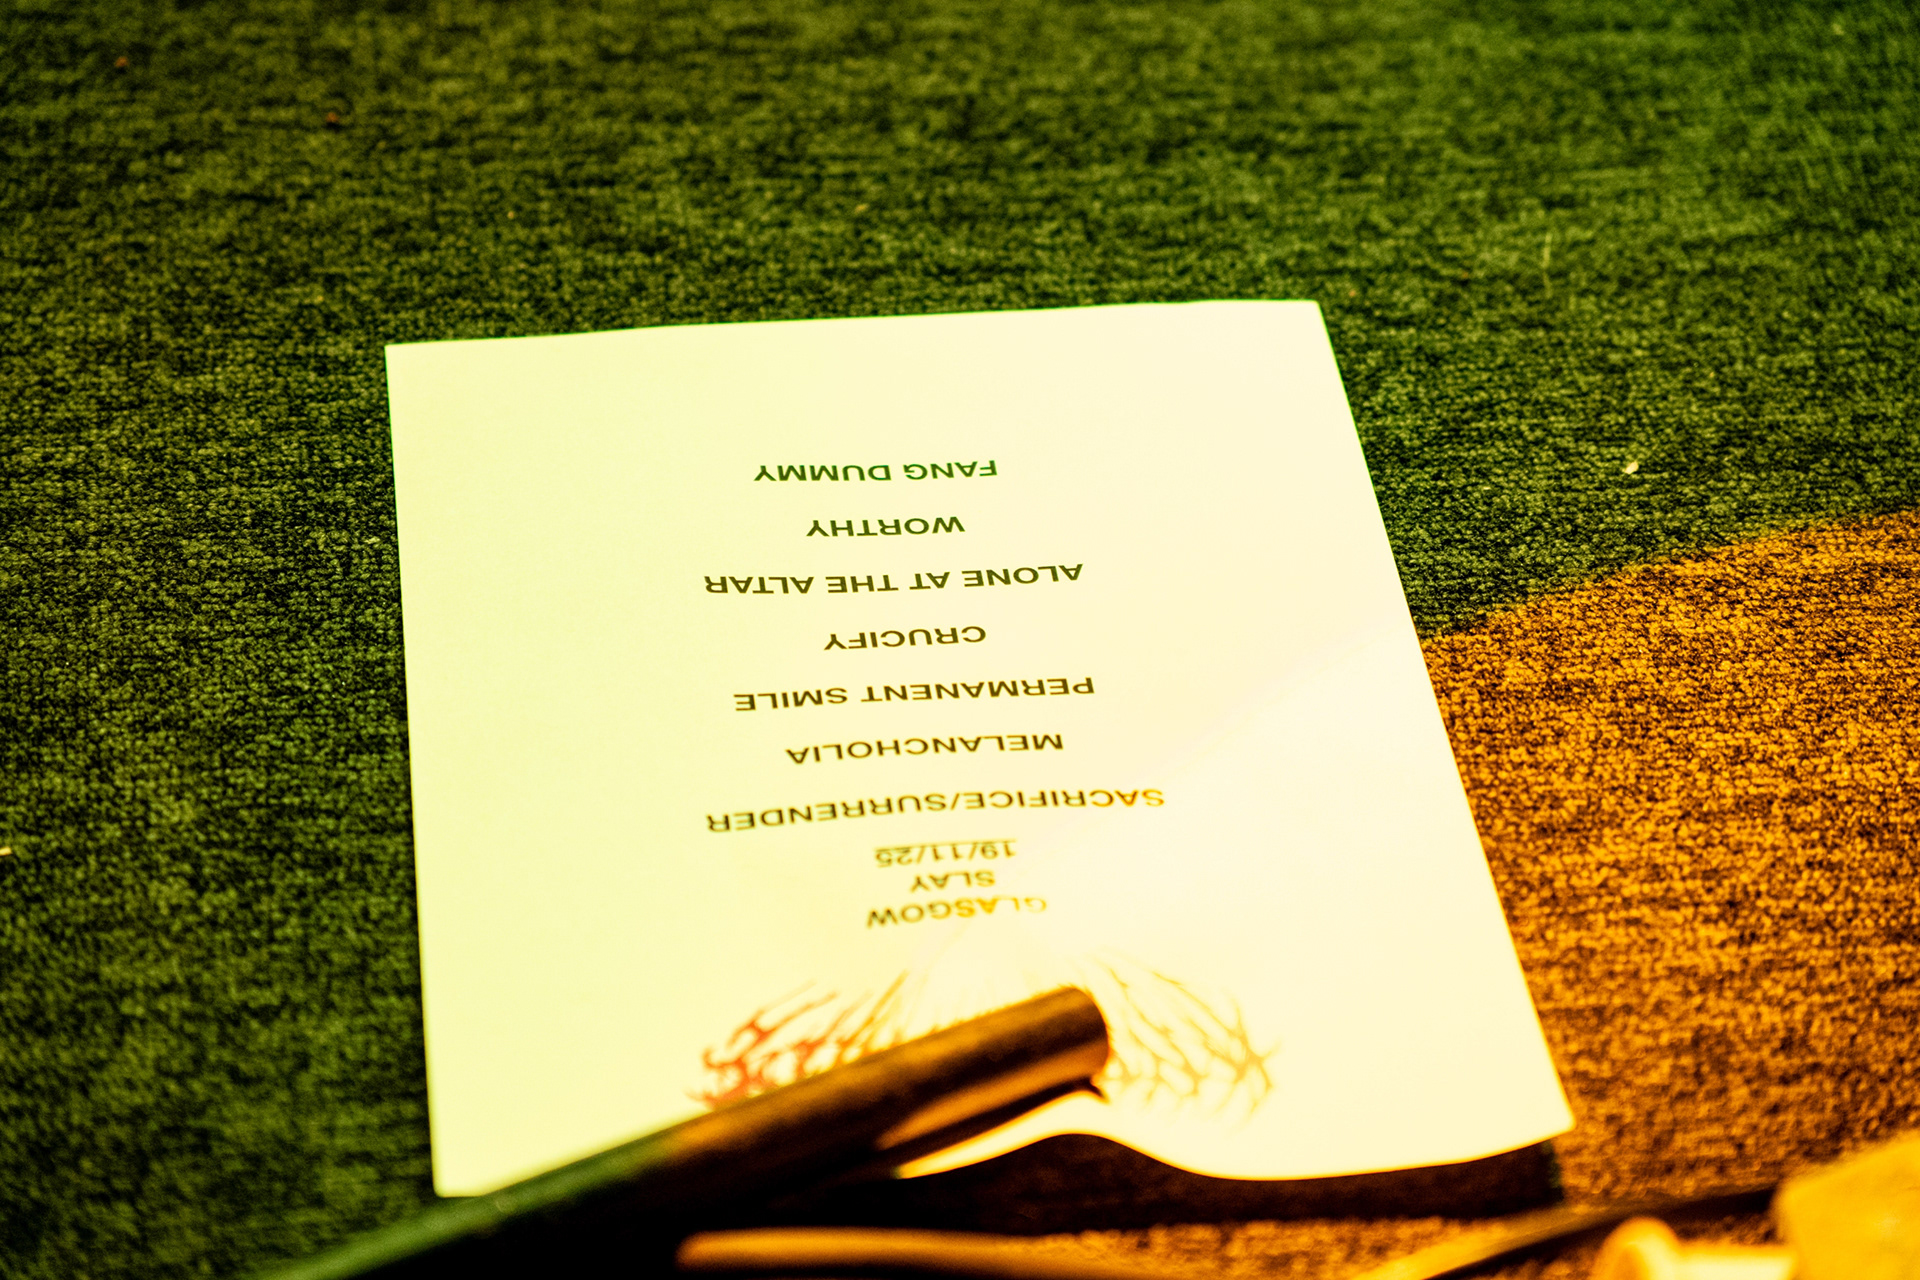 GLASGOW
SLAY
19/11/25
SACRIFICE/SURRENDER
MELANCHOLIA
PERMANENT SMILE
CRUCIFY
ALONE AT THE ALTAR
WORTHY
FANG DUMMY